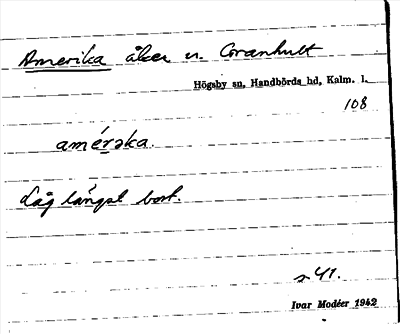 Amerika åker u. Cranhult
Högsby sn, Handbörds hd, Kalm. l.
108
amérəka.
Låg längst bort.
s 41.
Ivar Modéer 1942